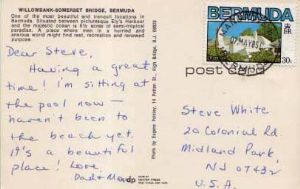 WILLOWBANK-SOMERSET BRIDGE, BERMUDA
One of the most beautiful and tranquil locations in
Bermuda. Situated between picturesque Ely's Harbour
and the majestic ocean is this six acres of semi-tropical
paradise. A place where men in a hurried and
anxious world might find rest, recreation and renewed
purpose.
Dear Steve,
Having a great
time! I'm sitting at
the pool now —
haven't been to
the beach yet.
It's a beautiful
place! Love,
Dad + Mom
Photo by Eugene
BERMUDA
MAY 85
30c
post card
Steve White
20 Colonial Rd.
Midland Park,
NJ 07432
U.S.A.